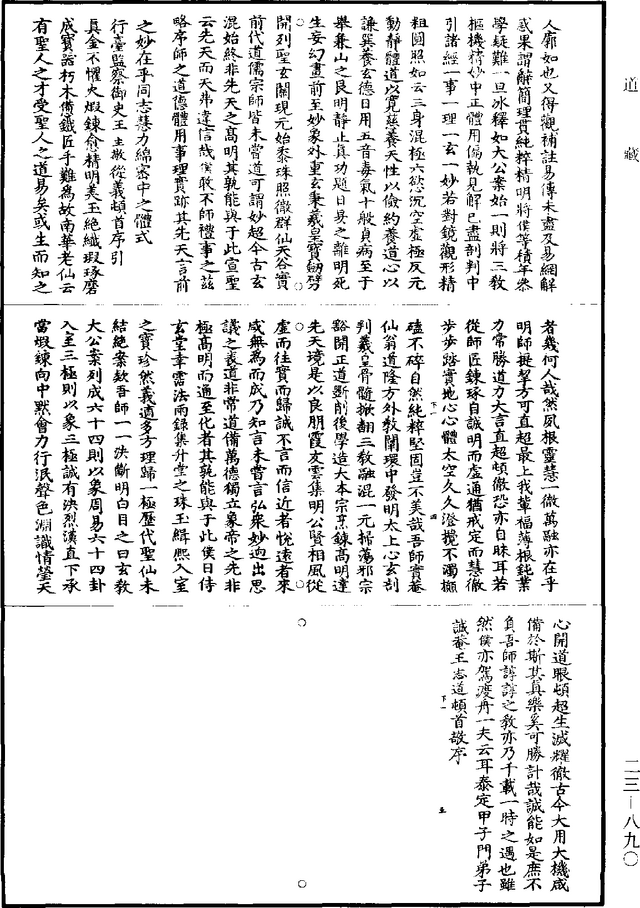 道藏
人廓如也又得觀補註易傳未盡及易綱解
惑果謂解簡理貫純粹精明將侯等積年參
學疑難一旦冰釋如大公案始一則將三教
樞機精妙中正體用偏執見解已盡剖判中
引諸經一事一理一玄一妙若對鏡觀形精
粗圓照如云三身混極六欲沉空虛極反元
動靜體道以寬慈養天性以儉約養道心以
謙巽養玄德日用五音毒氣十般貞病至于
舉兼山之艮明靜止真功題日昜之離明死
生妄幻畫前至妙象外重玄秉羲皇寶劒劈
開列聖玄關現元始黍珠照徹群仙天谷實
前代道儒宗師皆未嘗道可謂妙超今古玄
混始終非先天之高明其孰能與于此宣聖
云先天而天弗違信哉侯敢不師禮事之玆
略序師之道德體用事理實跡其先天言前
之妙在乎同志慧力綿密中之體式
行臺監察御史王主敬從義頓首序引
真金不懼火煆鍊愈精明美玉絕纖瑕琢磨
成寶器朽木備鐵匠手難為故南華老仙云
有聖人之才受聖人之道易矣或生而知之
者幾何人哉然夙根靈慧一微萬融亦在乎
明師提挈方可直超最上我輩福薄根鈍業
力常勝道力大言直超頓徹恐亦自昧耳若
從師匠鍊琢自誠明而虛通猶戒定而慧徹
步步踏實地心心體太空久久澄攪不濁𢷬
磕不碎自然純粹堅固豈不美哉吾師實菴
仙翁道隆方外教闡環中發明太上心玄刮
判羲皇骨髓掀翻三教融混一元掃蕩邪宗
豁開正道斷削後學造大本宗烹鍊高明達
先天境是以良朋霞友雲集明公賢相風從
虛而往實而歸誠不言而信近者悅遠者來
咸無為而成乃知言未嘗言弘槩妙逈出思
議之表道非常道道備萬德獨立象帝之先非
極高明而遍至化者其孰能與于此侯日侍
玄堂幸霑法雨錄集升堂之珠玉緝熙入室
之寶珍然義適多方理歸一極歷代聖仙未
結絕案欸吾師一一決斷明白目之曰玄教
大公案列成六十四則以象周易六十四卦
入室三極則以象三極誠有決烈漢直下承
當煆鍊向中默會力行泯聲色淵識情瑩天
心開道眼頓超生滅耀徹古今大用大機咸
備於斯其真樂奚可勝計哉誠能如是庶不
負吾師諄諄之教亦乃千載一時之遇也雖
然侯亦駕渡舟一夫云耳泰定甲子門弟子
誠菴王志道頓首敬序
二三－八九〇